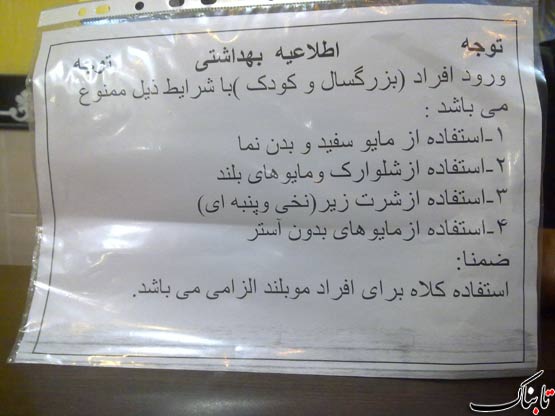 توجه اطلاعیه بهداشتی توجه
ورود افراد (بزرگسال و کودک )با شرایط ذیل ممنوع
می باشد :
۱-استفاده از مایو سفید و بدن نما
۲-استفاده ازشلوارک ومایوهای بلند
۳-استفاده ازشرت زیر(نخی وپنبه ای)
۴-استفاده ازمایوهای بدون آستر
ضمنا:
استفاده کلاه برای افراد موبلند الزامی می باشد.
تابناک